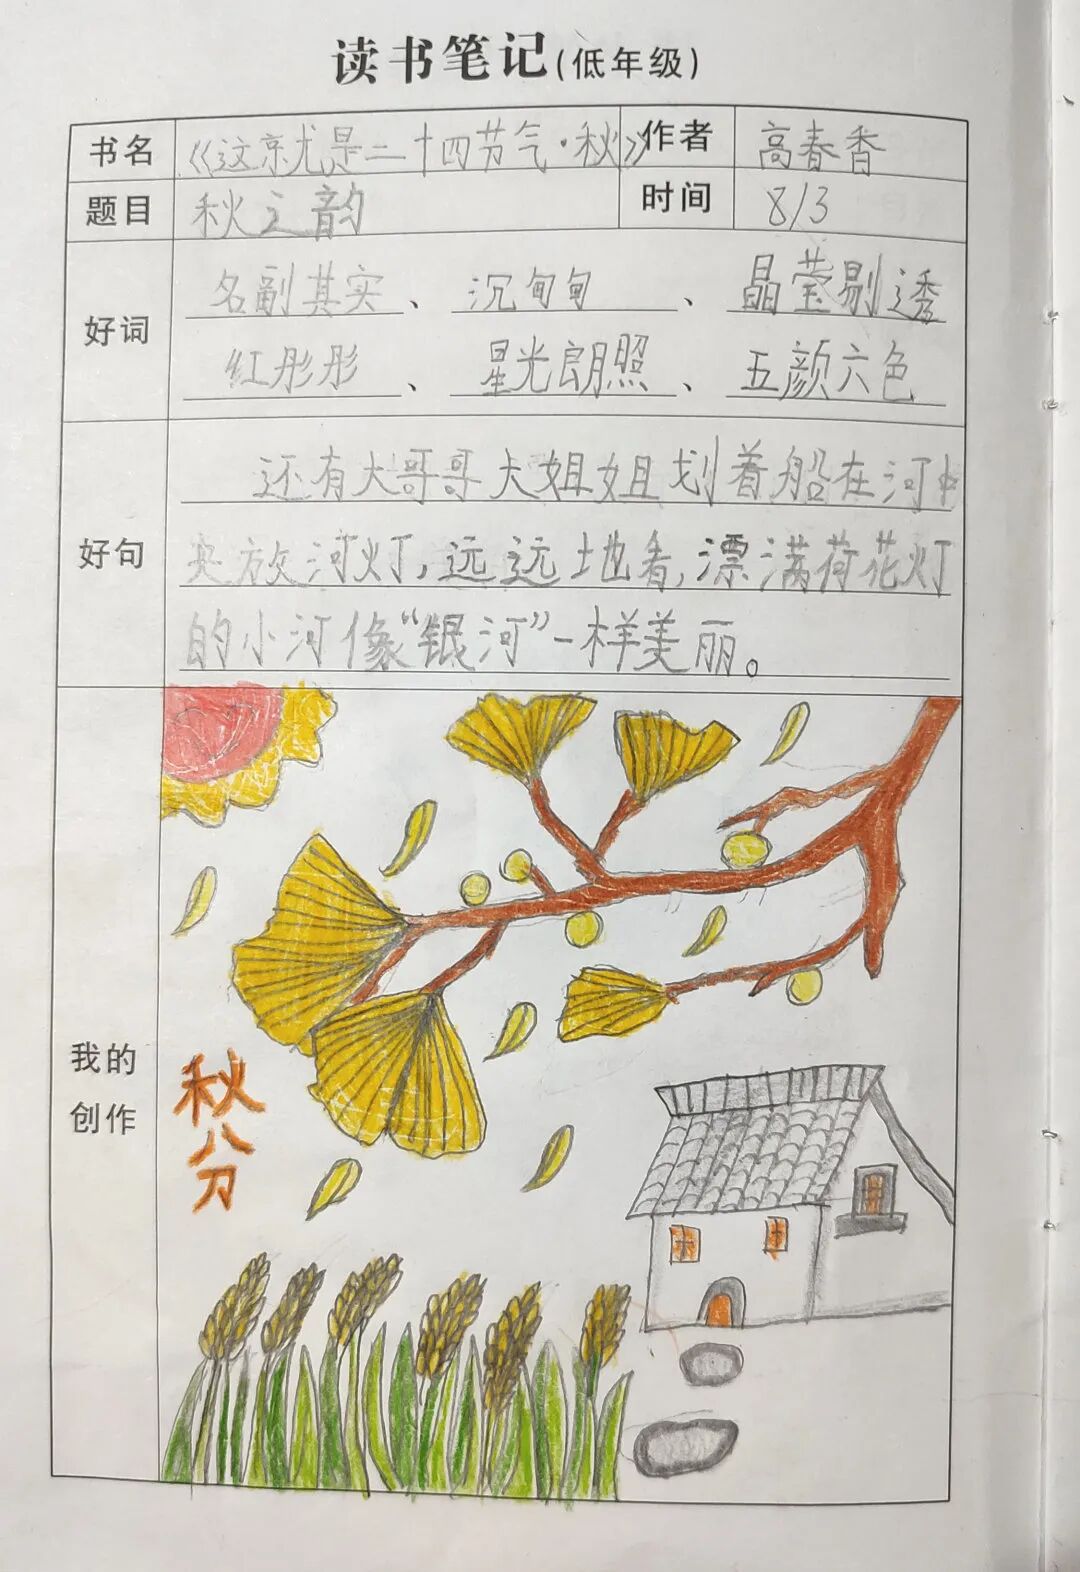 读书笔记(低年级)
书名 《这就是二十四节气·秋》 作者 高春香
题目 秋之韵 时间 8/3
好词 名副其实、沉甸甸、晶莹剔透
红彤彤、星光朗照、五颜六色
好句 还有大哥哥大姐姐划着船在河中
央放河灯，远远地看，漂满荷花灯
的小河像“银河”一样美丽。
我的
创作
秋分